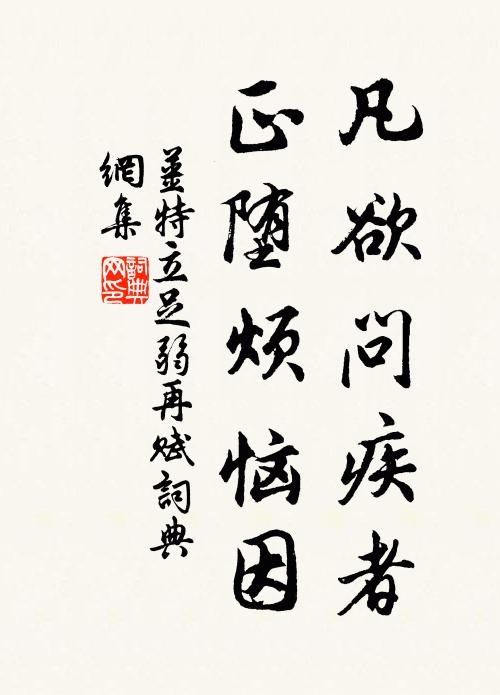 凡欲问疾者
正堕烦恼因
姜特立足弱再赋詞典
網集
詞典
网印